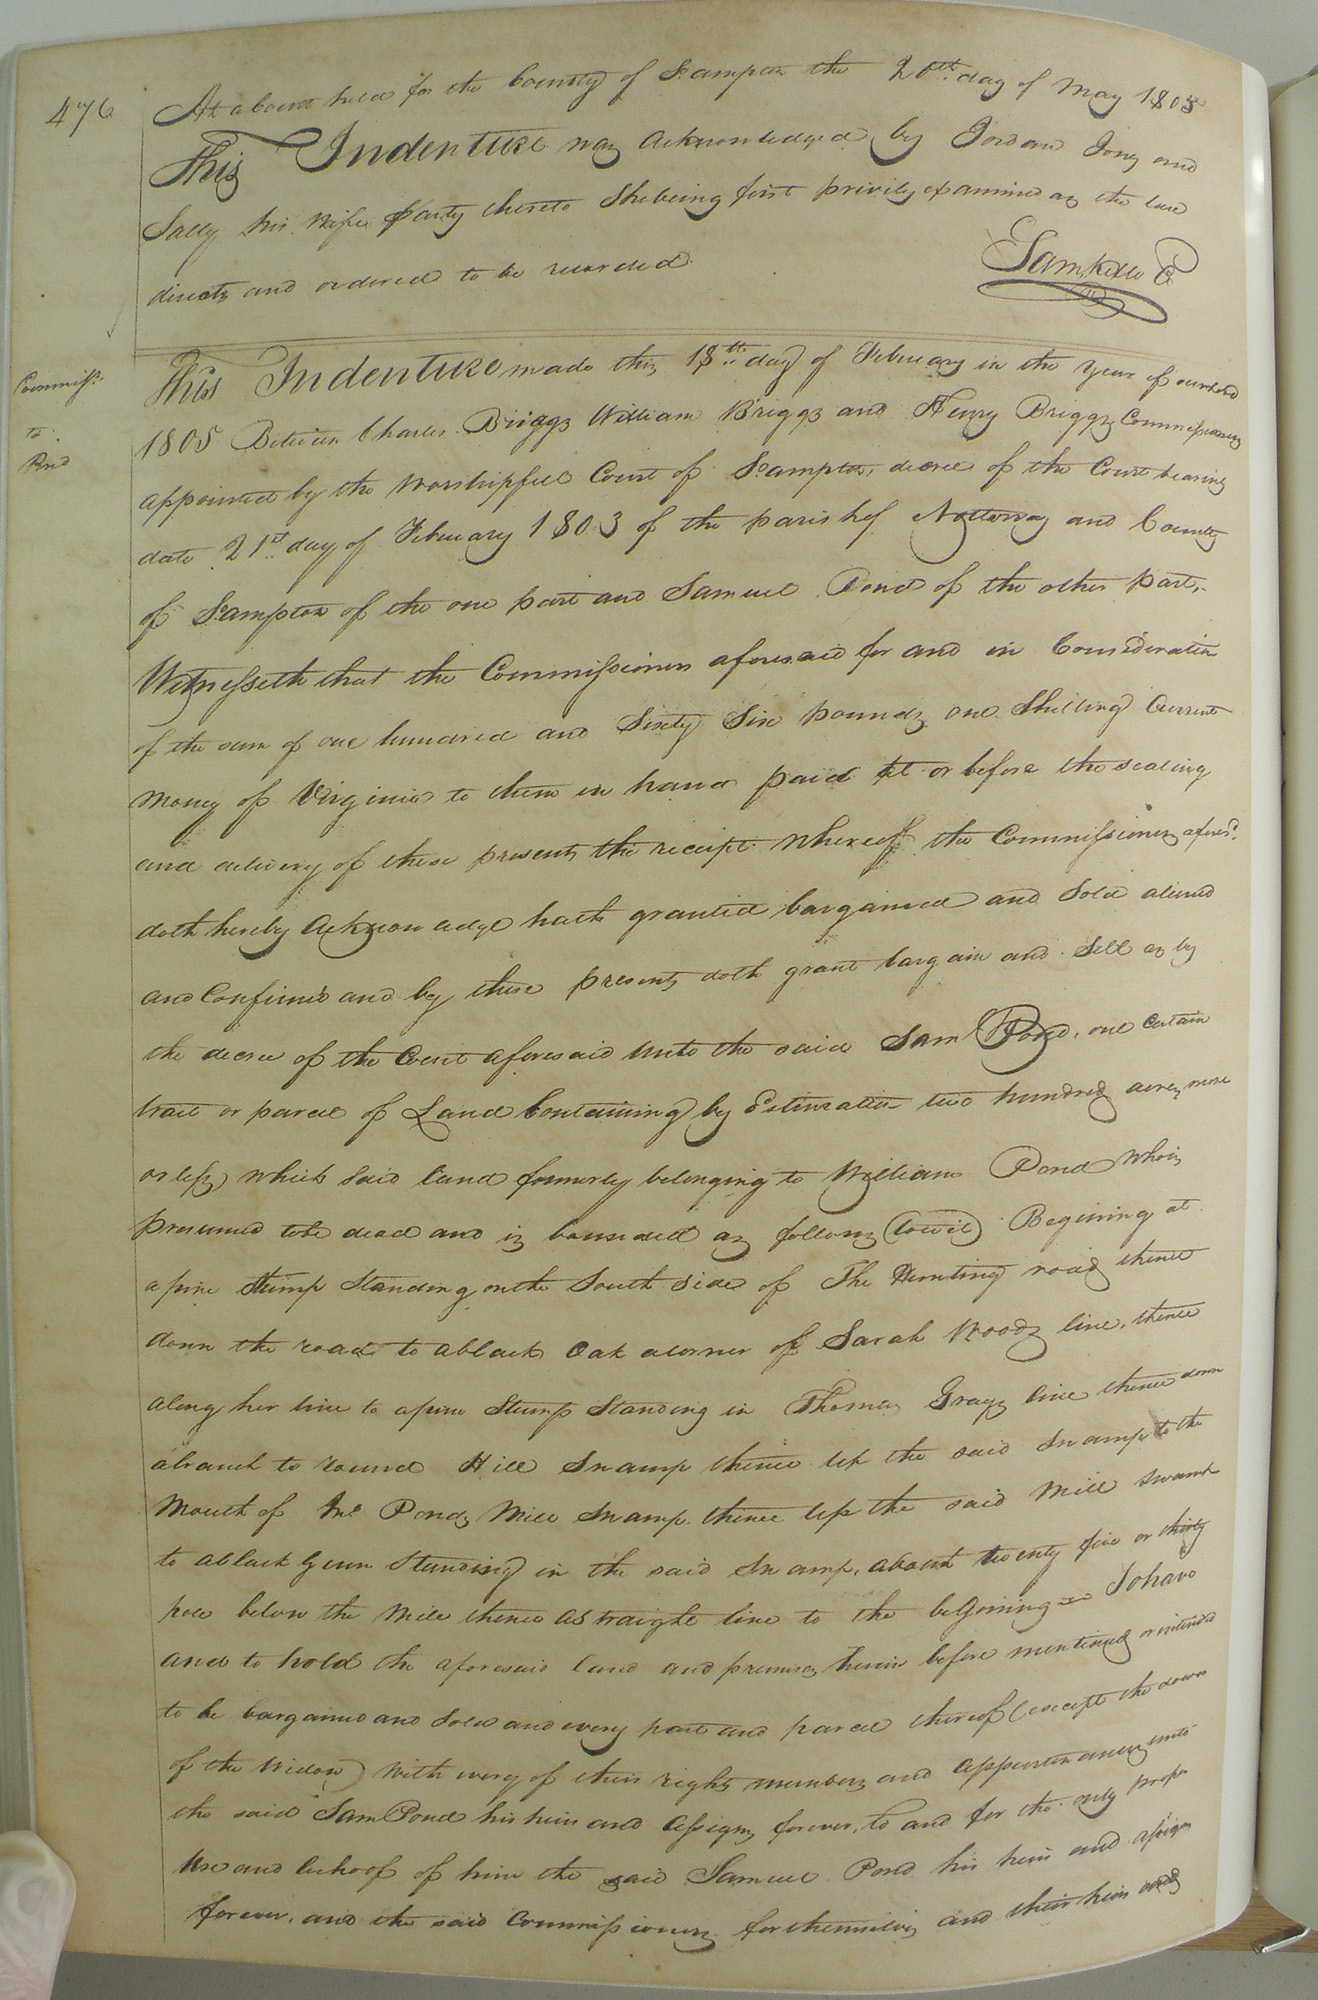 476
At a Court held for the County of S°ampton the 20th day of May 1805
This Indenture was Acknowledged by Jordan Jony and
Sally his wife party thereto She being first privily examined as the law
directs and ordered to be recorded.
Sam Kello C
Commiss.
to
Pond
This Indenture made this 18th day of February in the year of our Lord
1805 Between Charles Briggs William Briggs and Henry Briggs Commissioners
appointed by the Worshipfull Court of S°ampton, decree of the Court bearing
date 21st day of February 1803 of the parish of Nottoway and County
of S°ampton of the one part and Samuel Pond of the other part,
Witnesseth that the Commissioners aforesaid for and in Consideration
of the sum of one hundred and Sixty Six pounds one Shilling Current
Money of Virginia to them in hand paid at or before the sealing
and delivery of these presents the receipt whereof the Commissioners afores.d
doth hereby Acknowledge hath granted bargained and Sold aliend
and Confirmd and by these presents doth grant bargain and Sell as by
the decree of the Court aforesaid unto the said Sam Pond, one Certain
tract or parcel of Land Containing by Estimation two hundred acres more
or less, which said land formerly belonging to William Pond who is
presumed to be dead and is bounded as follows (towit) Begining at
a pine Stump Standing on the South side of The Hunting road thence
down the road to a black Oak a corner of Sarah Woods line, thence
along her line to a pine Stump Standing in Thomas Grays line thence down
a branch to round Hill Swamp thence up the said Swamp to the
Mouth of Jn.o Ponds Mill Swamp thence up the said Mill Swamp
to a black Gum Standing in the said Swamp, about twenty five or thirty
pole below the Mill thence a Straight line to the begining = To have
and to hold the aforesaid land and premises herein before mentioned or intended
to be bargained and sold and every part and parcel thereof (except the dower
of the Widow) With every of their rights members and Appurtenances unto
the said Sam Pond his heirs and Assigns forever, to and for the only proper
Use and behoof of him the said Samuel Pond his heirs and assigns
forever, and the said Commissioners for themselves and their heirs